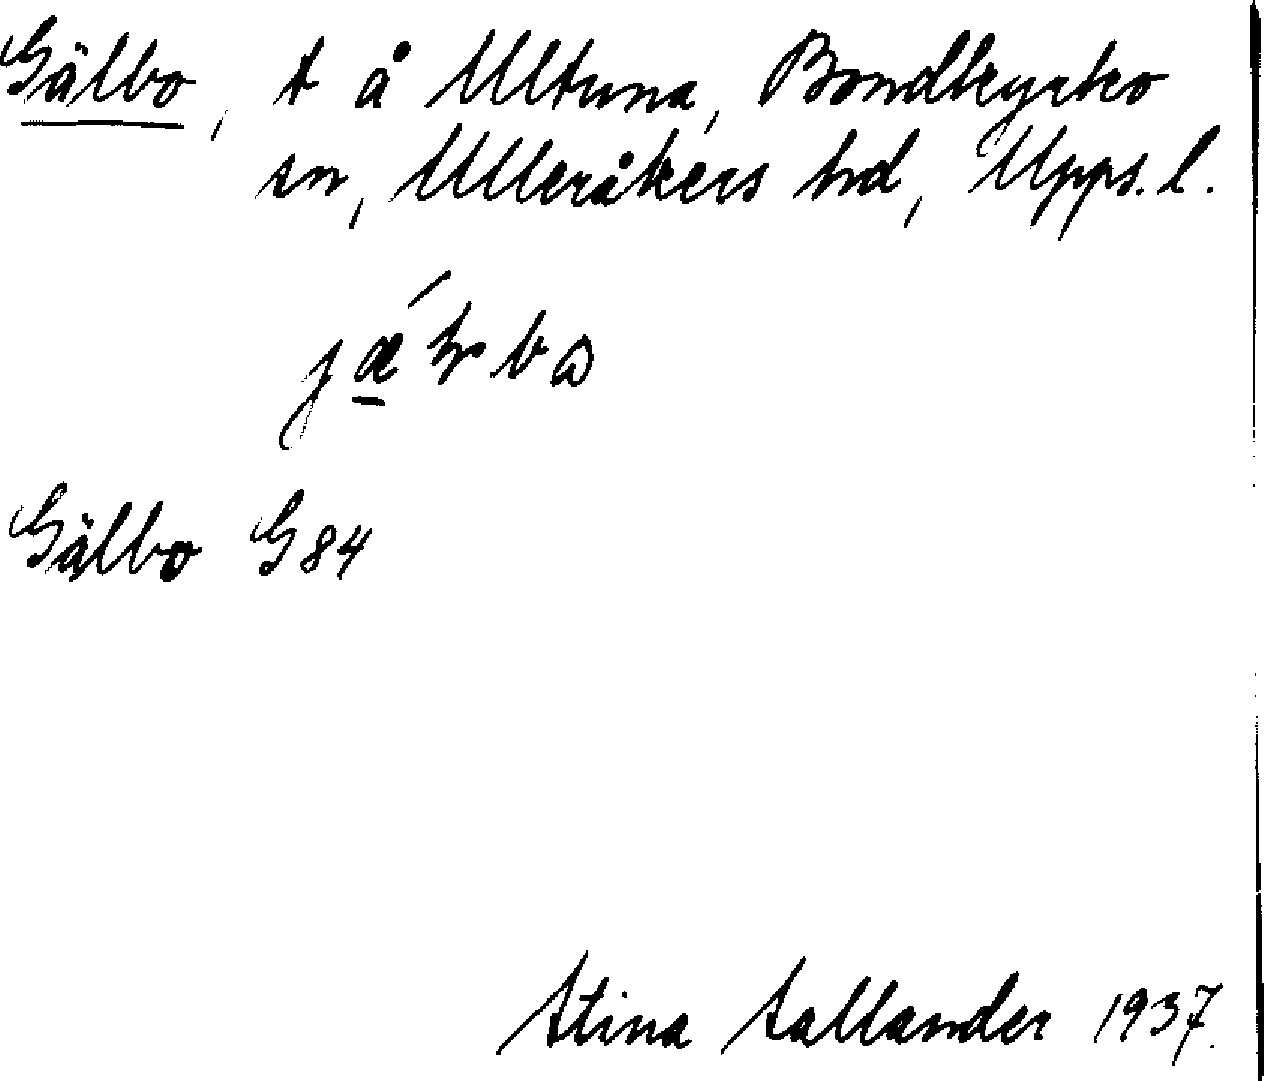 Gälbo, t å Ultuna, Bondkyrko
sn, Ulleråkers hd, Upps. l.
Gälbo G84
Stina Sallander 1937.